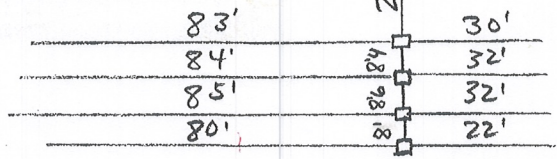 83' 30'
84' 8'4 32'
85' 8'6 32'
80' 8' 22'